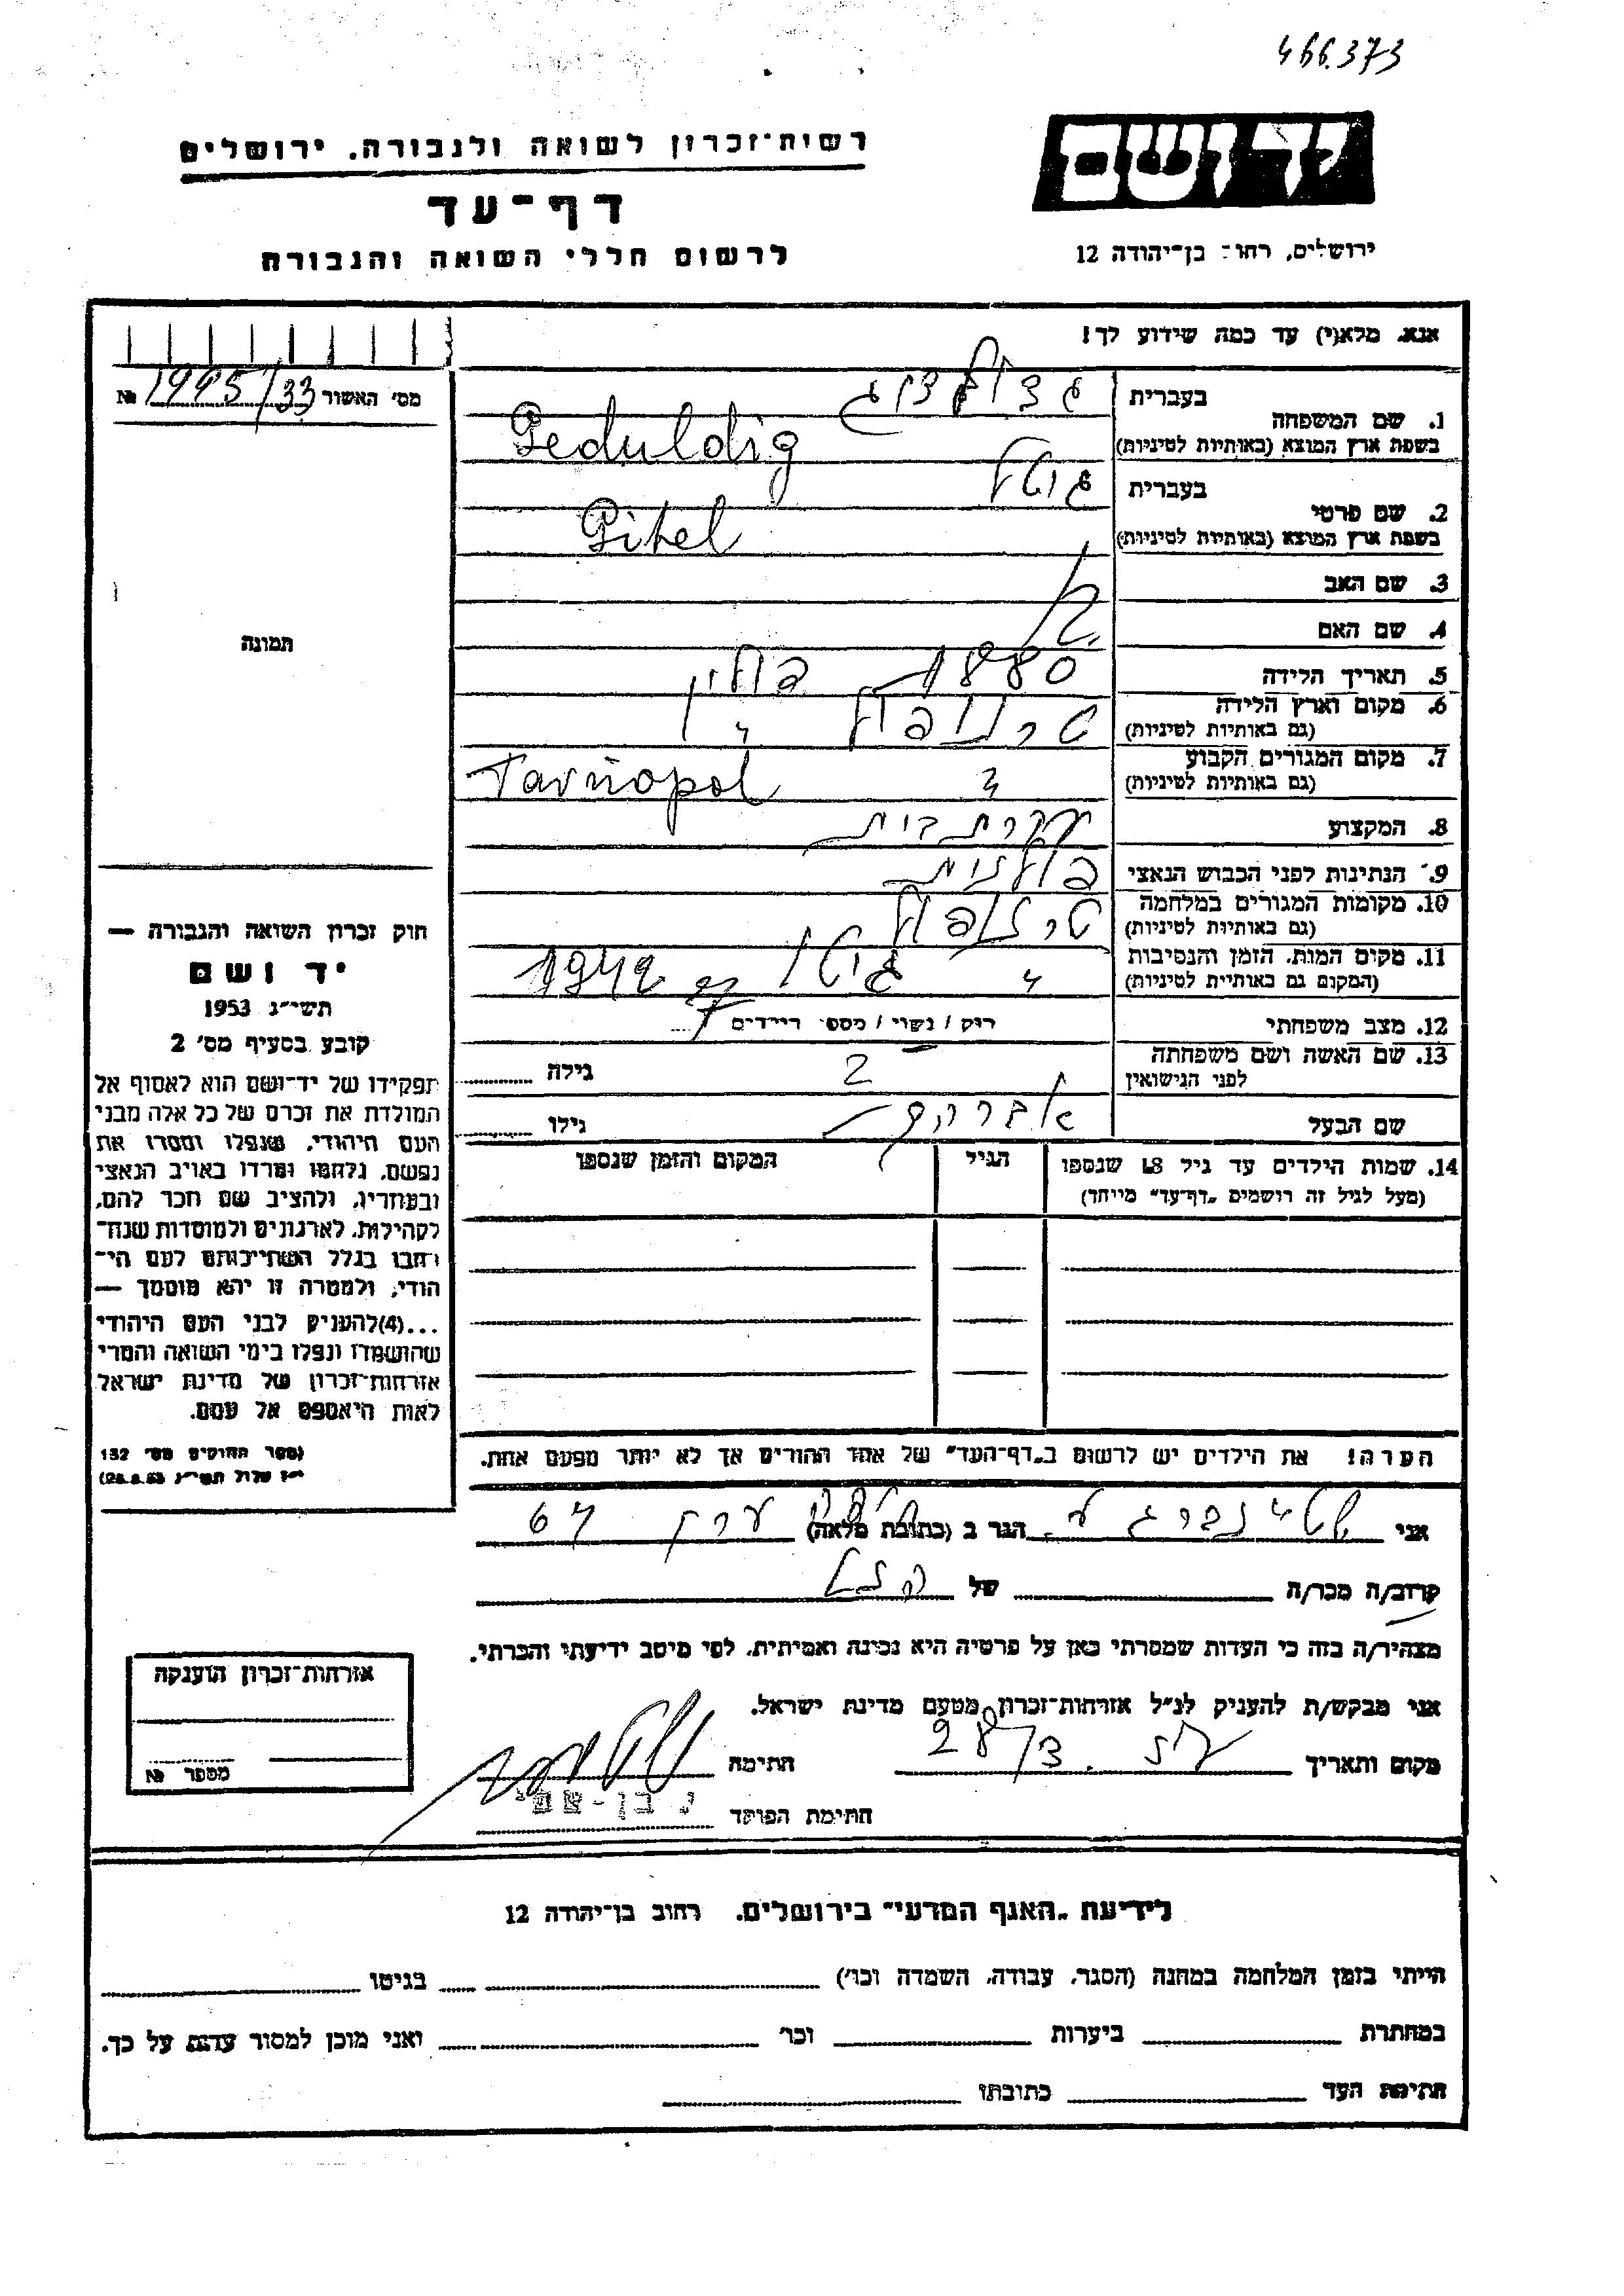 466.373
רשות־זכרון לשואה ולגבורה. ירושלים
יד ושם
דף־עד
ירושלים, רחוב בן־יהודה 12
לרשום חללי השואה והגבורה
אנא, מלא(י) עד כמה שידוע לך!
מס׳ האשור 1995/33 №
1. שם המשפחה
בעברית
בשפת ארץ המוצא (באותיות לטיניות) Geduldig
2. שם פרטי
בעברית גיטל
בשפת ארץ המוצא (באותיות לטיניות) Gitel
3. שם האב
4. שם האם
5. תאריך הלידה 1880
6. מקום וארץ הלידה טרנופול פולין
(גם באותיות לטיניות)
7. מקום המגורים הקבוע
(גם באותיות לטיניות) Tarnopol
8. המקצוע עקרת בית
9. הנתינות לפני הכבוש הנאצי פולנית
10. מקומות המגורים במלחמה טרנופול
(גם באותיות לטיניות)
11. מקום המות, הזמן והנסיבות גיטו 1942
(המקום גם באותיות לטיניות)
12. מצב משפחתי רוק / נשוי / מספר הילדים
13. שם האשה ושם משפחתה
לפני הנישואין גילה
שם הבעל אברהם גילו
14. שמות הילדים עד גיל 18 שנספו הגיל המקום והזמן שנספו
(מעל לגיל זה רושמים „דף־עד״ מייחד)
הערה! את הילדים יש לרשום ב„דף־העד״ של אחד ההורים אך לא יותר מפעם אחת.
תמונה
חוק זכרון השואה והגבורה —
יד ושם
תשי״ג 1953
קובע בסעיף מס׳ 2
תפקידו של יד־ושם הוא לאסוף אל
המולדת את זכרם של כל אלה מבני
העם היהודי, שנפלו ומסרו את
נפשם, נלחמו ומרדו באויב הנאצי
ובעוזריו, ולהציב שם וזכר להם,
לקהילות, לארגונים ולמוסדות שנח־
רבו בגלל השתייכותם לעם הי־
הודי, ולמטרה זו יהא מוסמך —
...(4)להעניק לבני העם היהודי
שהושמדו ונפלו בימי השואה והמרי
אזרחות־זכרון של מדינת ישראל
לאות היאספם אל עמם.
(ספר החוקים מס׳ 132
י״ז אלול תשי״ג 28.8.53)
אני שטיינברג הגר ב (כתובת מלאה) 67
קרוב/ה מכר/ה של הנ״ל
מצהיר/ה בזה כי העדות שמסרתי כאן על פרטיה היא נכונה ואמיתית, לפי מיטב ידיעתי והכרתי.
אני מבקש/ת להעניק לנ״ל אזרחות־זכרון מטעם מדינת ישראל.
מקום ותאריך 28/3 חתימה
חתימת הפוקד
אזרחות־זכרון הוענקה
מספר №
לידיעת „האגף המדעי״ בירושלים. רחוב בן־יהודה 12
הייתי בזמן המלחמה במחנה (הסגר, עבודה, השמדה וכו׳) בגיטו
במחתרת ביערות וכו׳ ואני מוכן למסור עדות על כך.
חתימת העד כתובתו